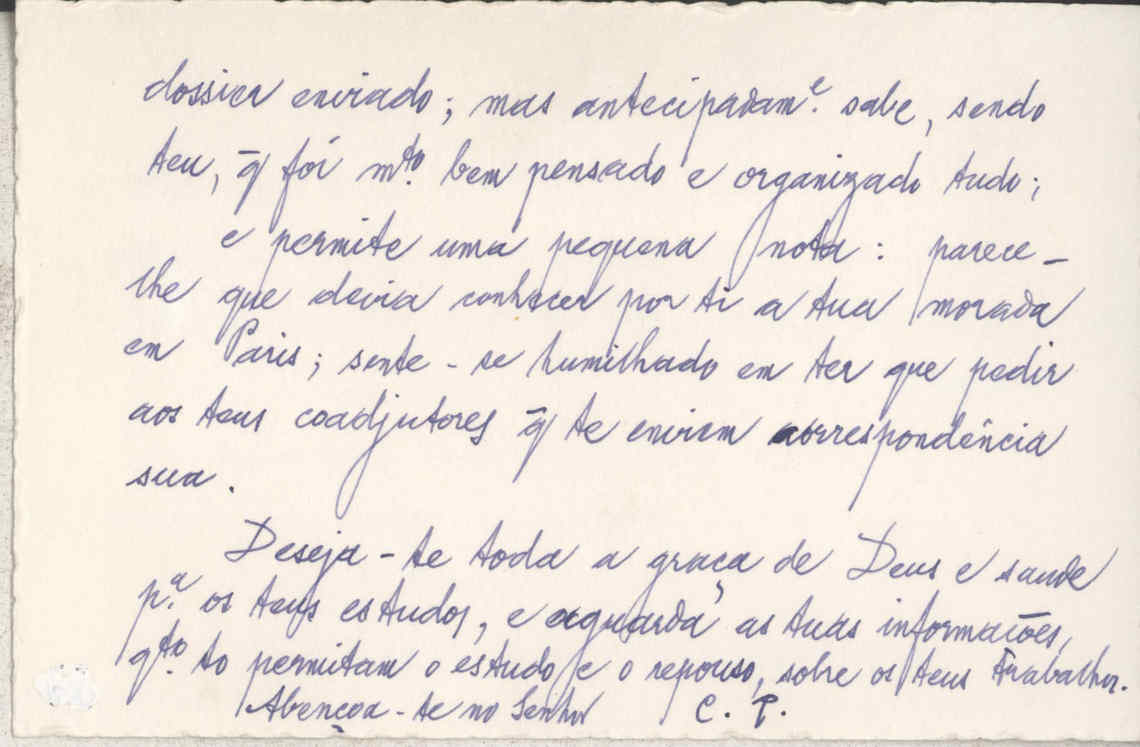 dossier enviado; mas antecipadam.e sabe, sendo
teu, q̄ foi m.to bem pensado e organizado tudo;
e permite uma pequena nota: parece-
lhe que devia conhecer por ti a tua morada
em Paris; sente-se humilhado em ter que pedir
aos teus coadjutores q̄ te enviem correspondência
sua.
Deseja-te toda a graça de Deus e saude
p.a os teus estudos, e aguarda as tuas informações,
q.to to permitam o estudo e o repouso, sobre os teus trabalhos.
Abençoa-te no Senhor C. P.